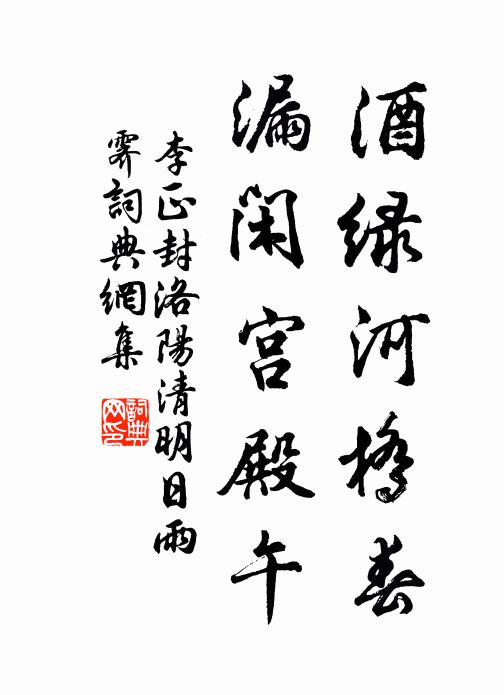 酒绿河橋春
漏闲宫殿午
李正封洛陽清明日雨
霽詞典網集
詞典网印